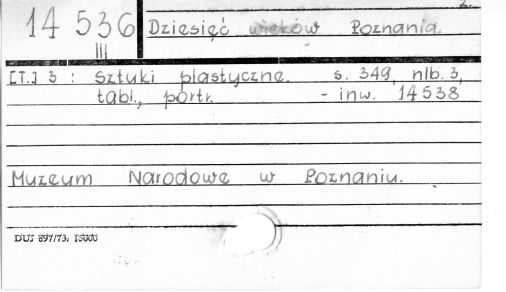 2.
14 536 Dziesięć wieków Poznania.
III
[T.] 3 : Sztuki plastyczne. s. 349, nlb. 3,
tabl., portr. - inw. 14538
Muzeum Narodowe w Poznaniu.
DUJ 897/73. 15000